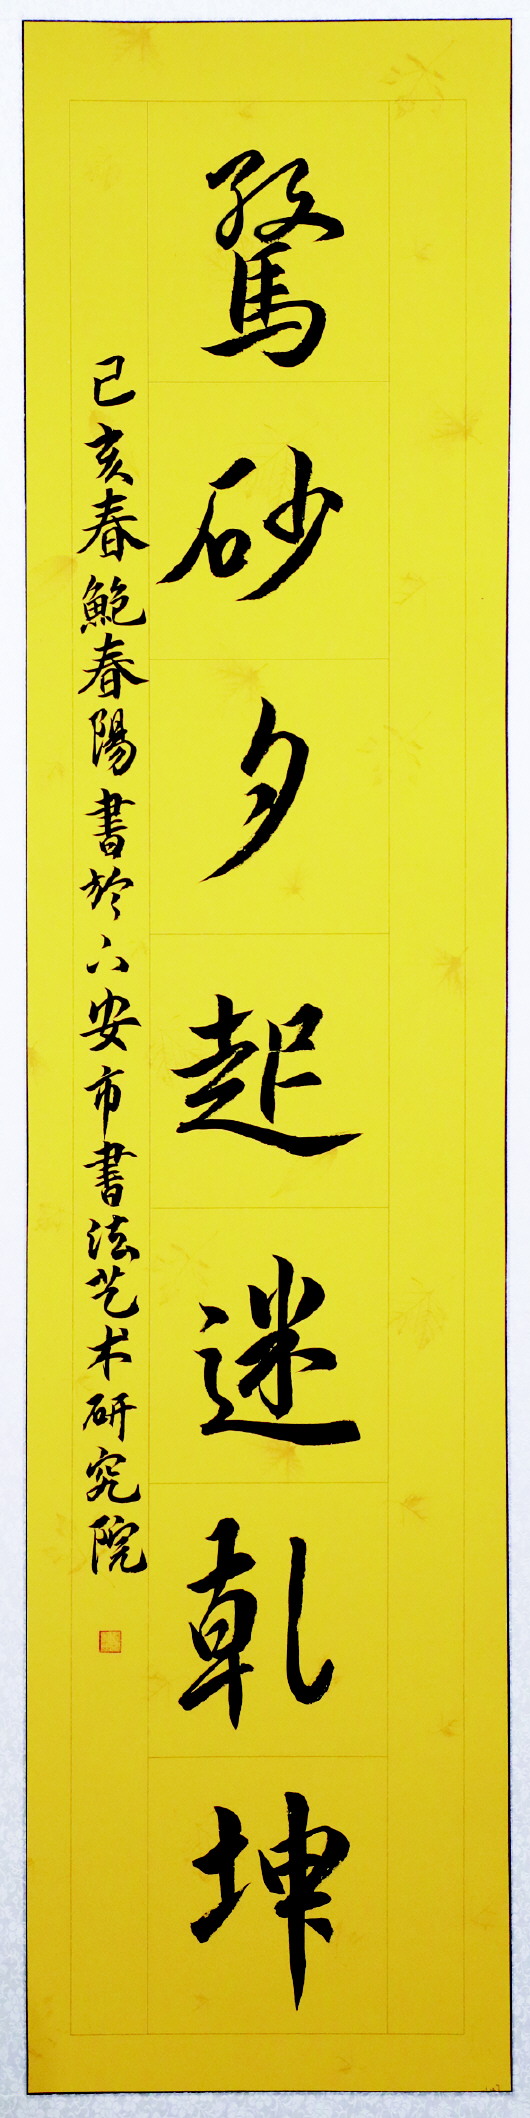 骛砂夕起迷乾坤
己亥春鲍春陽書於六安市書法艺术研究院